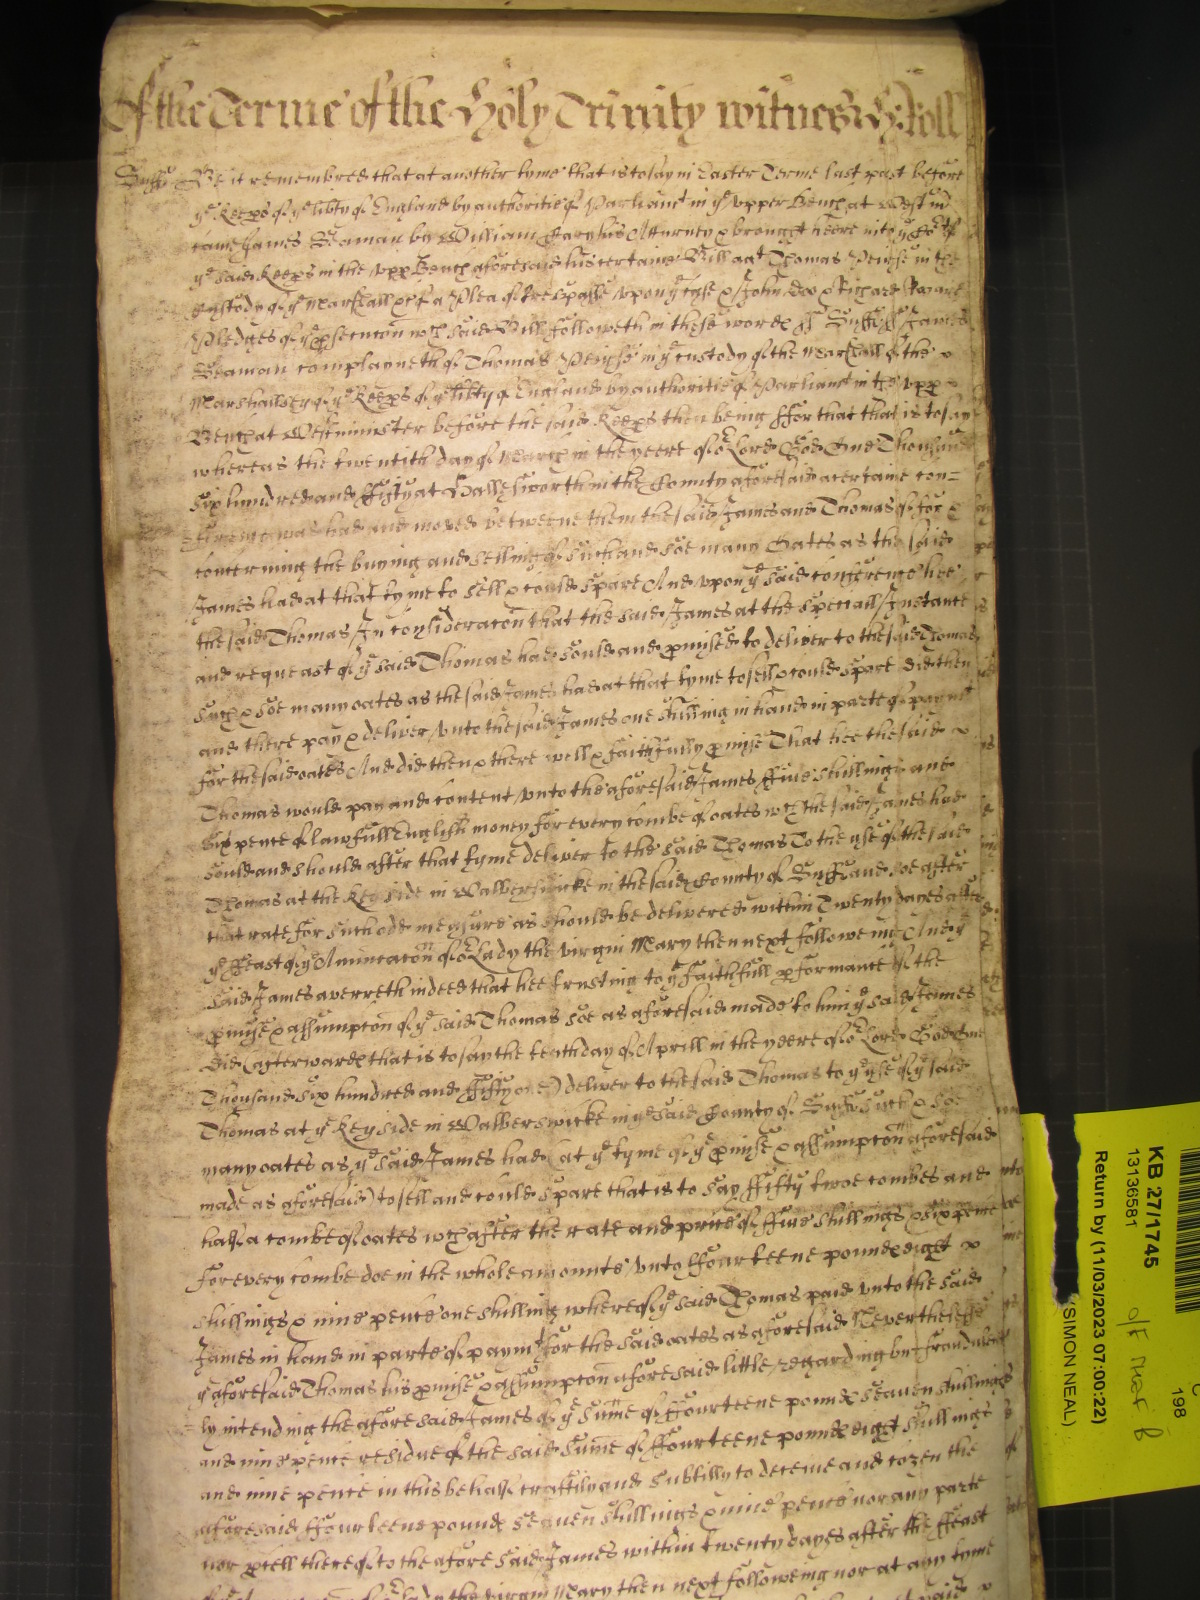 Of the Terme of the Holy Trinity witnes H: Roll
Suff Be it remembred that at another tyme that is to say in Easter Terme last past before
ye Keeps of ye libty of England by authoritie of Parliamt in ye upper Bench at Westm
came James Seaman by William his Atturney & brought heere into ye Court of
ye said Keeps in the upp Bench aforesaid his certaine Bill agt Thomas Peirse in the
custody of ye Marshall &c of a Plea of trespasse upon ye case & John Doo & Richard Roo are
Pledges of ye psecucon wch said Bill followeth in these words ss Suff ss James
Seaman complayneth of Thomas Peirse in ye custody of the Marshall of the
Marshallsey of ye Keeps of ye libty of England by authoritie of Parliamt in the upp
Bench at Westminster before the said Keeps then being ffor that that is to say
whereas the twentith day of March in the yeere of or Lord God One Thousand
Six hundred and ffifty at Hallesworth in the County aforesaid a certaine con=
ference was had and moved betweene them the said James and Thomas of for &
concerning the buying and selling of such and soe many Oates as the said
James had at that tyme to sell & could spare And upon ye said conference hee
the said Thomas In consideracon that the said James at the speciall Instance
and request of ye said Thomas had sould and pmised to deliver to the said Thomas
such & soe many oates as the said James had at that tyme to sell & could spare did then
and there pay & deliver unto the said James one shilling in hand in parte of paymt
for the said oates And did then & there well & faithfully pmise That hee the said
Thomas would pay and content unto the aforesaid James ffive shillings and
Six pence of lawfull English money for every combe of oates wch the said James had
sould and should after that tyme deliver to the said Thomas To the use of the said
Thomas at the Key side in Walberswicke in the said County of Suff and soe after
that rate for such odd measure as should be delivered within Twenty dayes after
ye ffeast of ye Annuncacon of or Lady the virgin Mary then next followeing And ye
said James averreth indeed that hee trusting to ye faithfull pformance of the
pmise & assumpcon of ye said Thomas soe as aforesaid made to him ye said James
did (afterwards that is to say the tenth day of Aprill in the yeere of or Lord God One
Thousand six hundred and ffifty one) deliver to the said Thomas to ye use of ye said
Thomas at ye Key side in Walberswicke in ye said County of Suff such & soe
many oates as ye said James had (at ye tyme of ye pmise & assumpcon aforesaid
made as aforesaid) to sell and could spare that is to say ffifty twoe combes and
half a combe of oates wch after the rate and price of ffive shillings & six pence
for every combe doe in the whole amounte unto ffourteene pounds eight
shillings & nine pence one shilling whereof ye said Thomas paid unto the said
James in hand in parte of paymt for the said oates as aforesaid Neverthelesse
ye aforesaid Thomas his pmise & assumpcon aforesaid little regarding but fraudulent
ly intending the aforesaid James of ye sume of ffourteene pounds seaven shillings
and nine pence residue of the said sume of ffourteene pounds eight shillings
and nine pence in this behalf craftily and subtilly to deceive and cozen the
aforesaid ffourteene pounds seaven shillings & nine pence nor any parte
nor pcell thereof to the aforesaid James within twenty dayes after the ffeast
Lady the virgin Mary then next followeing nor at any tyme
KB 27/1745
13136581
Return by (11/03/2023 07:00:22)
(SIMON NEAL)
198